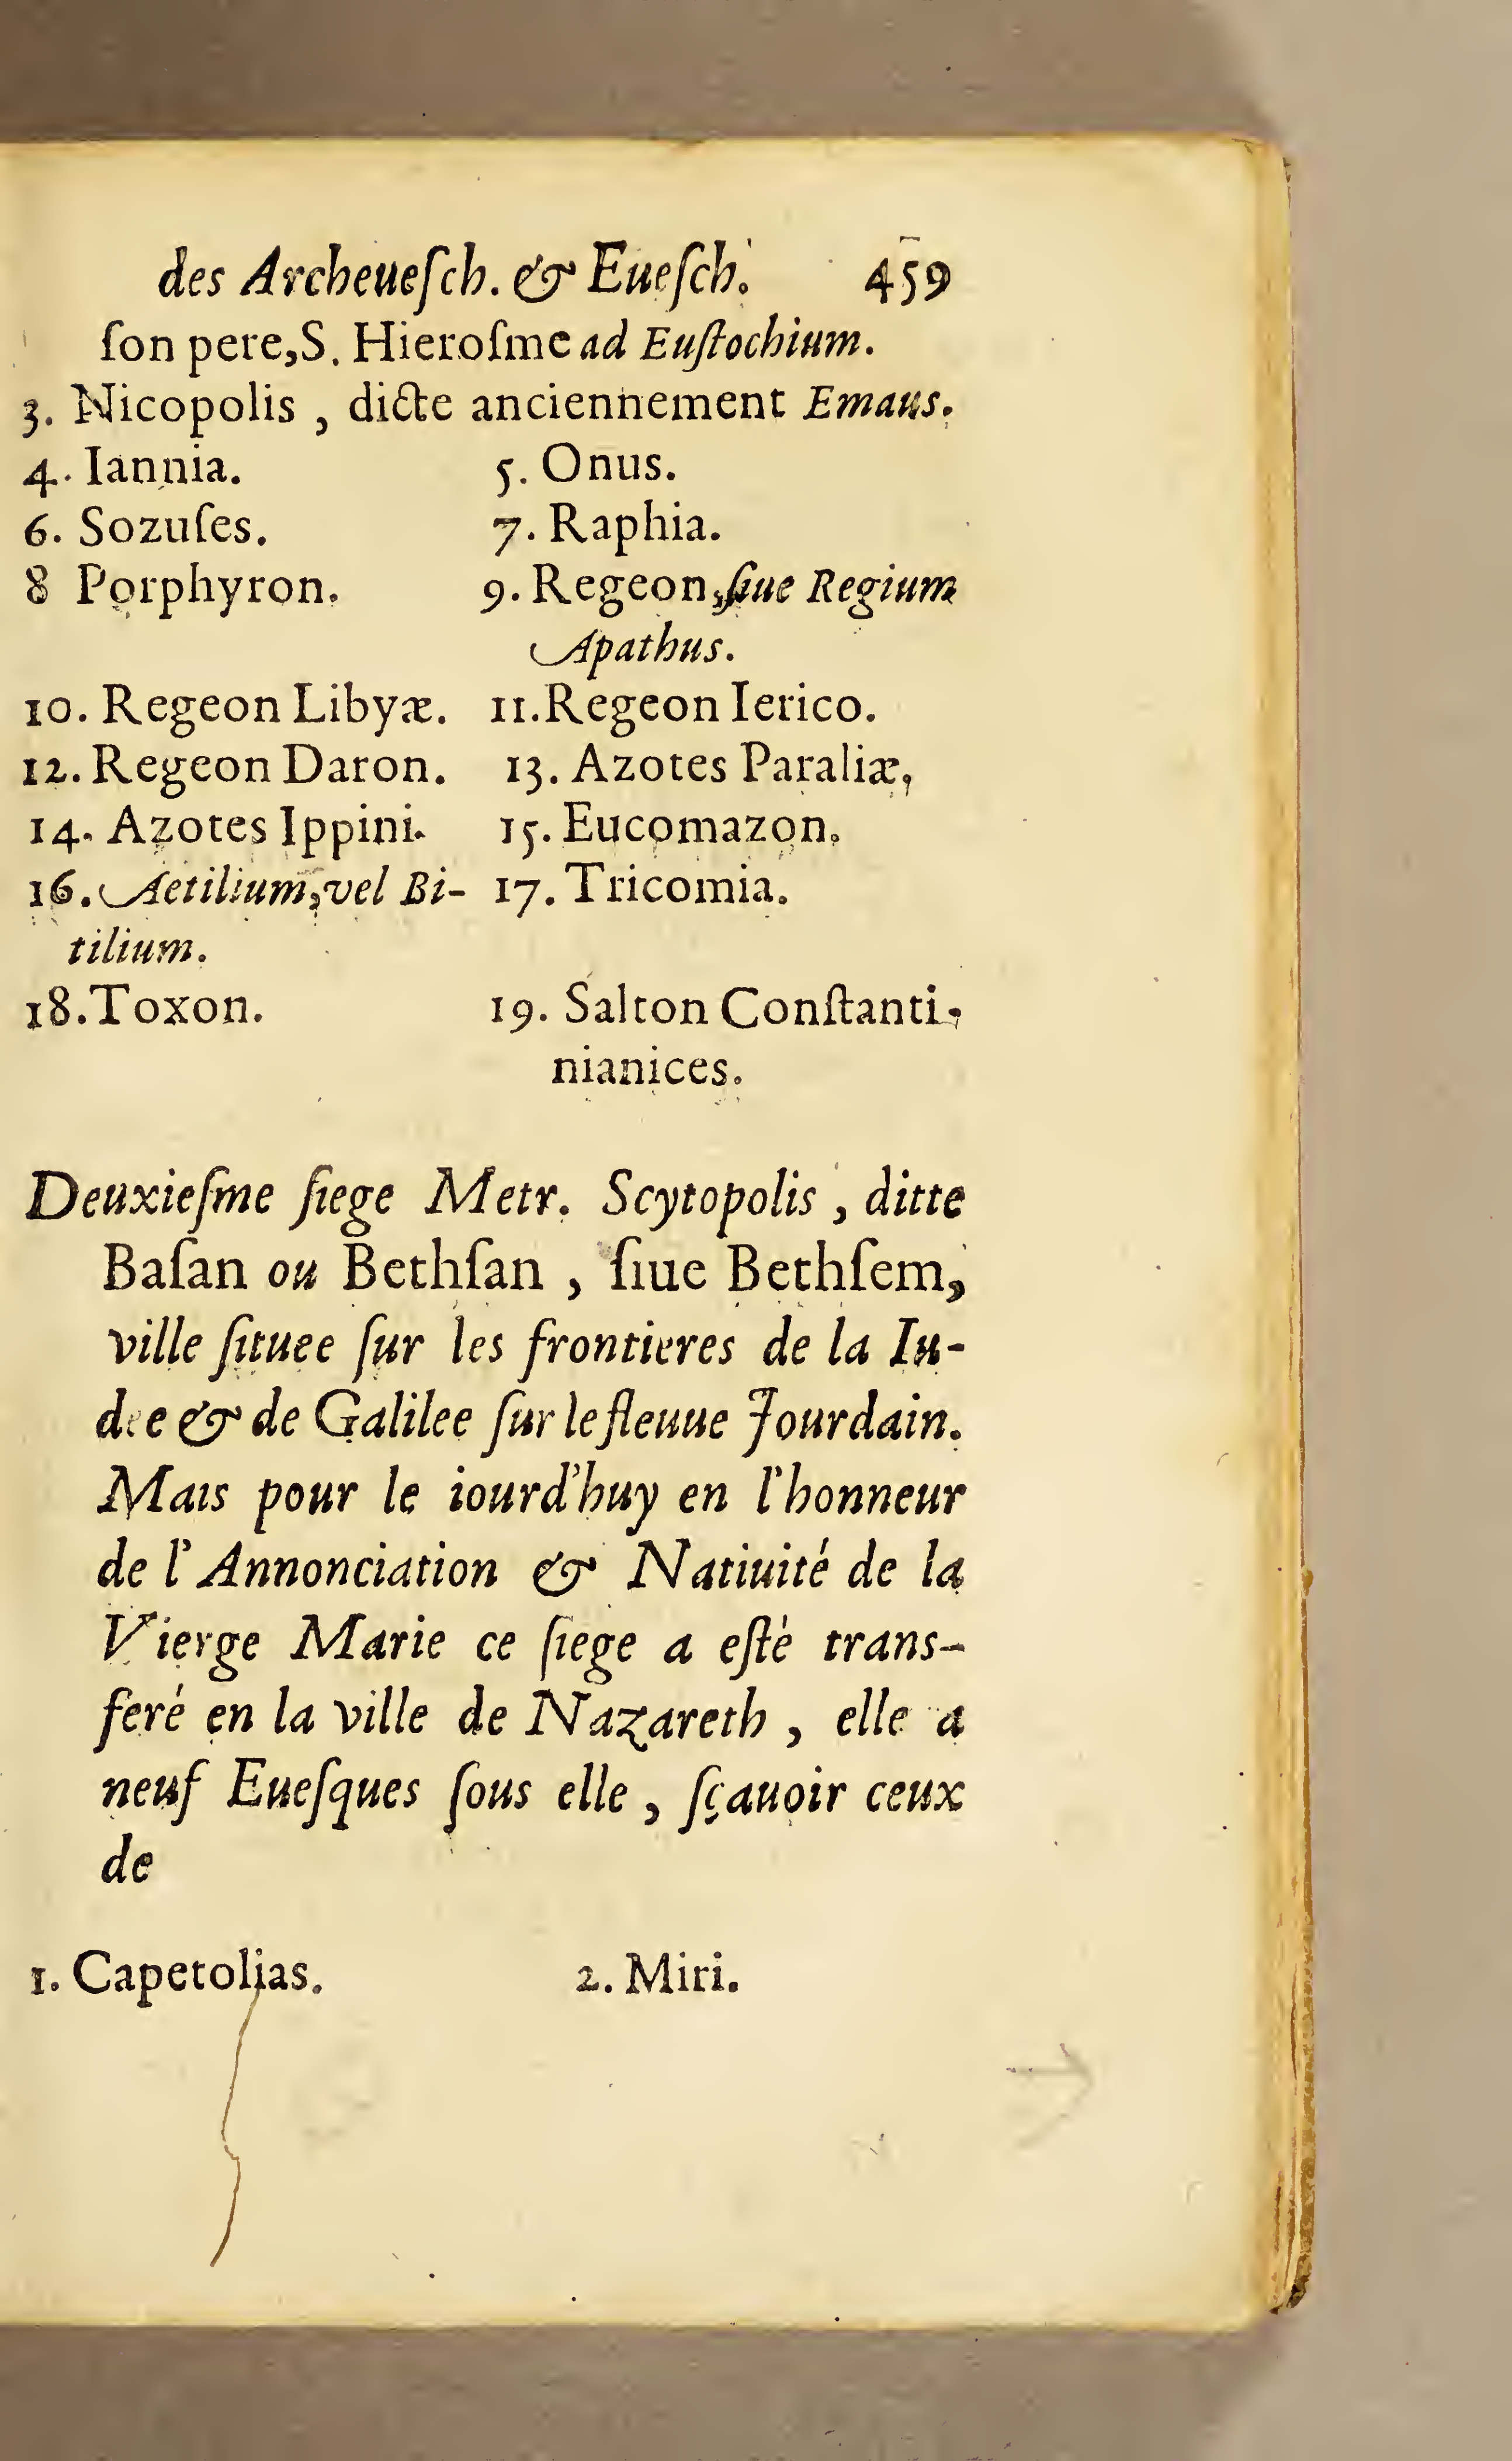 des Archeueſch. & Eueſch. 459
ſon pere, S. Hieroſme ad Euſtochium.
3. Nicopolis, dicte anciennement Emaus.
4. Iannia. 5. Onus.
6. Sozuſes. 7. Raphia.
8 Porphyron. 9. Regeon, ſiue Regium
Apathus.
10. Regeon Libyæ. 11. Regeon Ierico.
12. Regeon Daron. 13. Azotes Paraliæ,
14. Azotes Ippini. 15. Eucomazon.
16. Aetilium, vel Bi- 17. Tricomia.
tilium.
18. Toxon. 19. Salton Conſtanti-
nianices.
Deuxieſme ſiege Metr. Scytopolis, ditte
Baſan ou Bethſan, ſiue Bethſem,
ville ſituee ſur les frontieres de la Iu-
dee & de Galilee ſur le fleuue Jourdain.
Mais pour le iourd'huy en l'honneur
de l'Annonciation & Natiuité de la
Vierge Marie ce ſiege a eſté trans-
feré en la ville de Nazareth, elle a
neuf Eueſques ſous elle, ſçauoir ceux
de
1. Capetolias. 2. Miri.